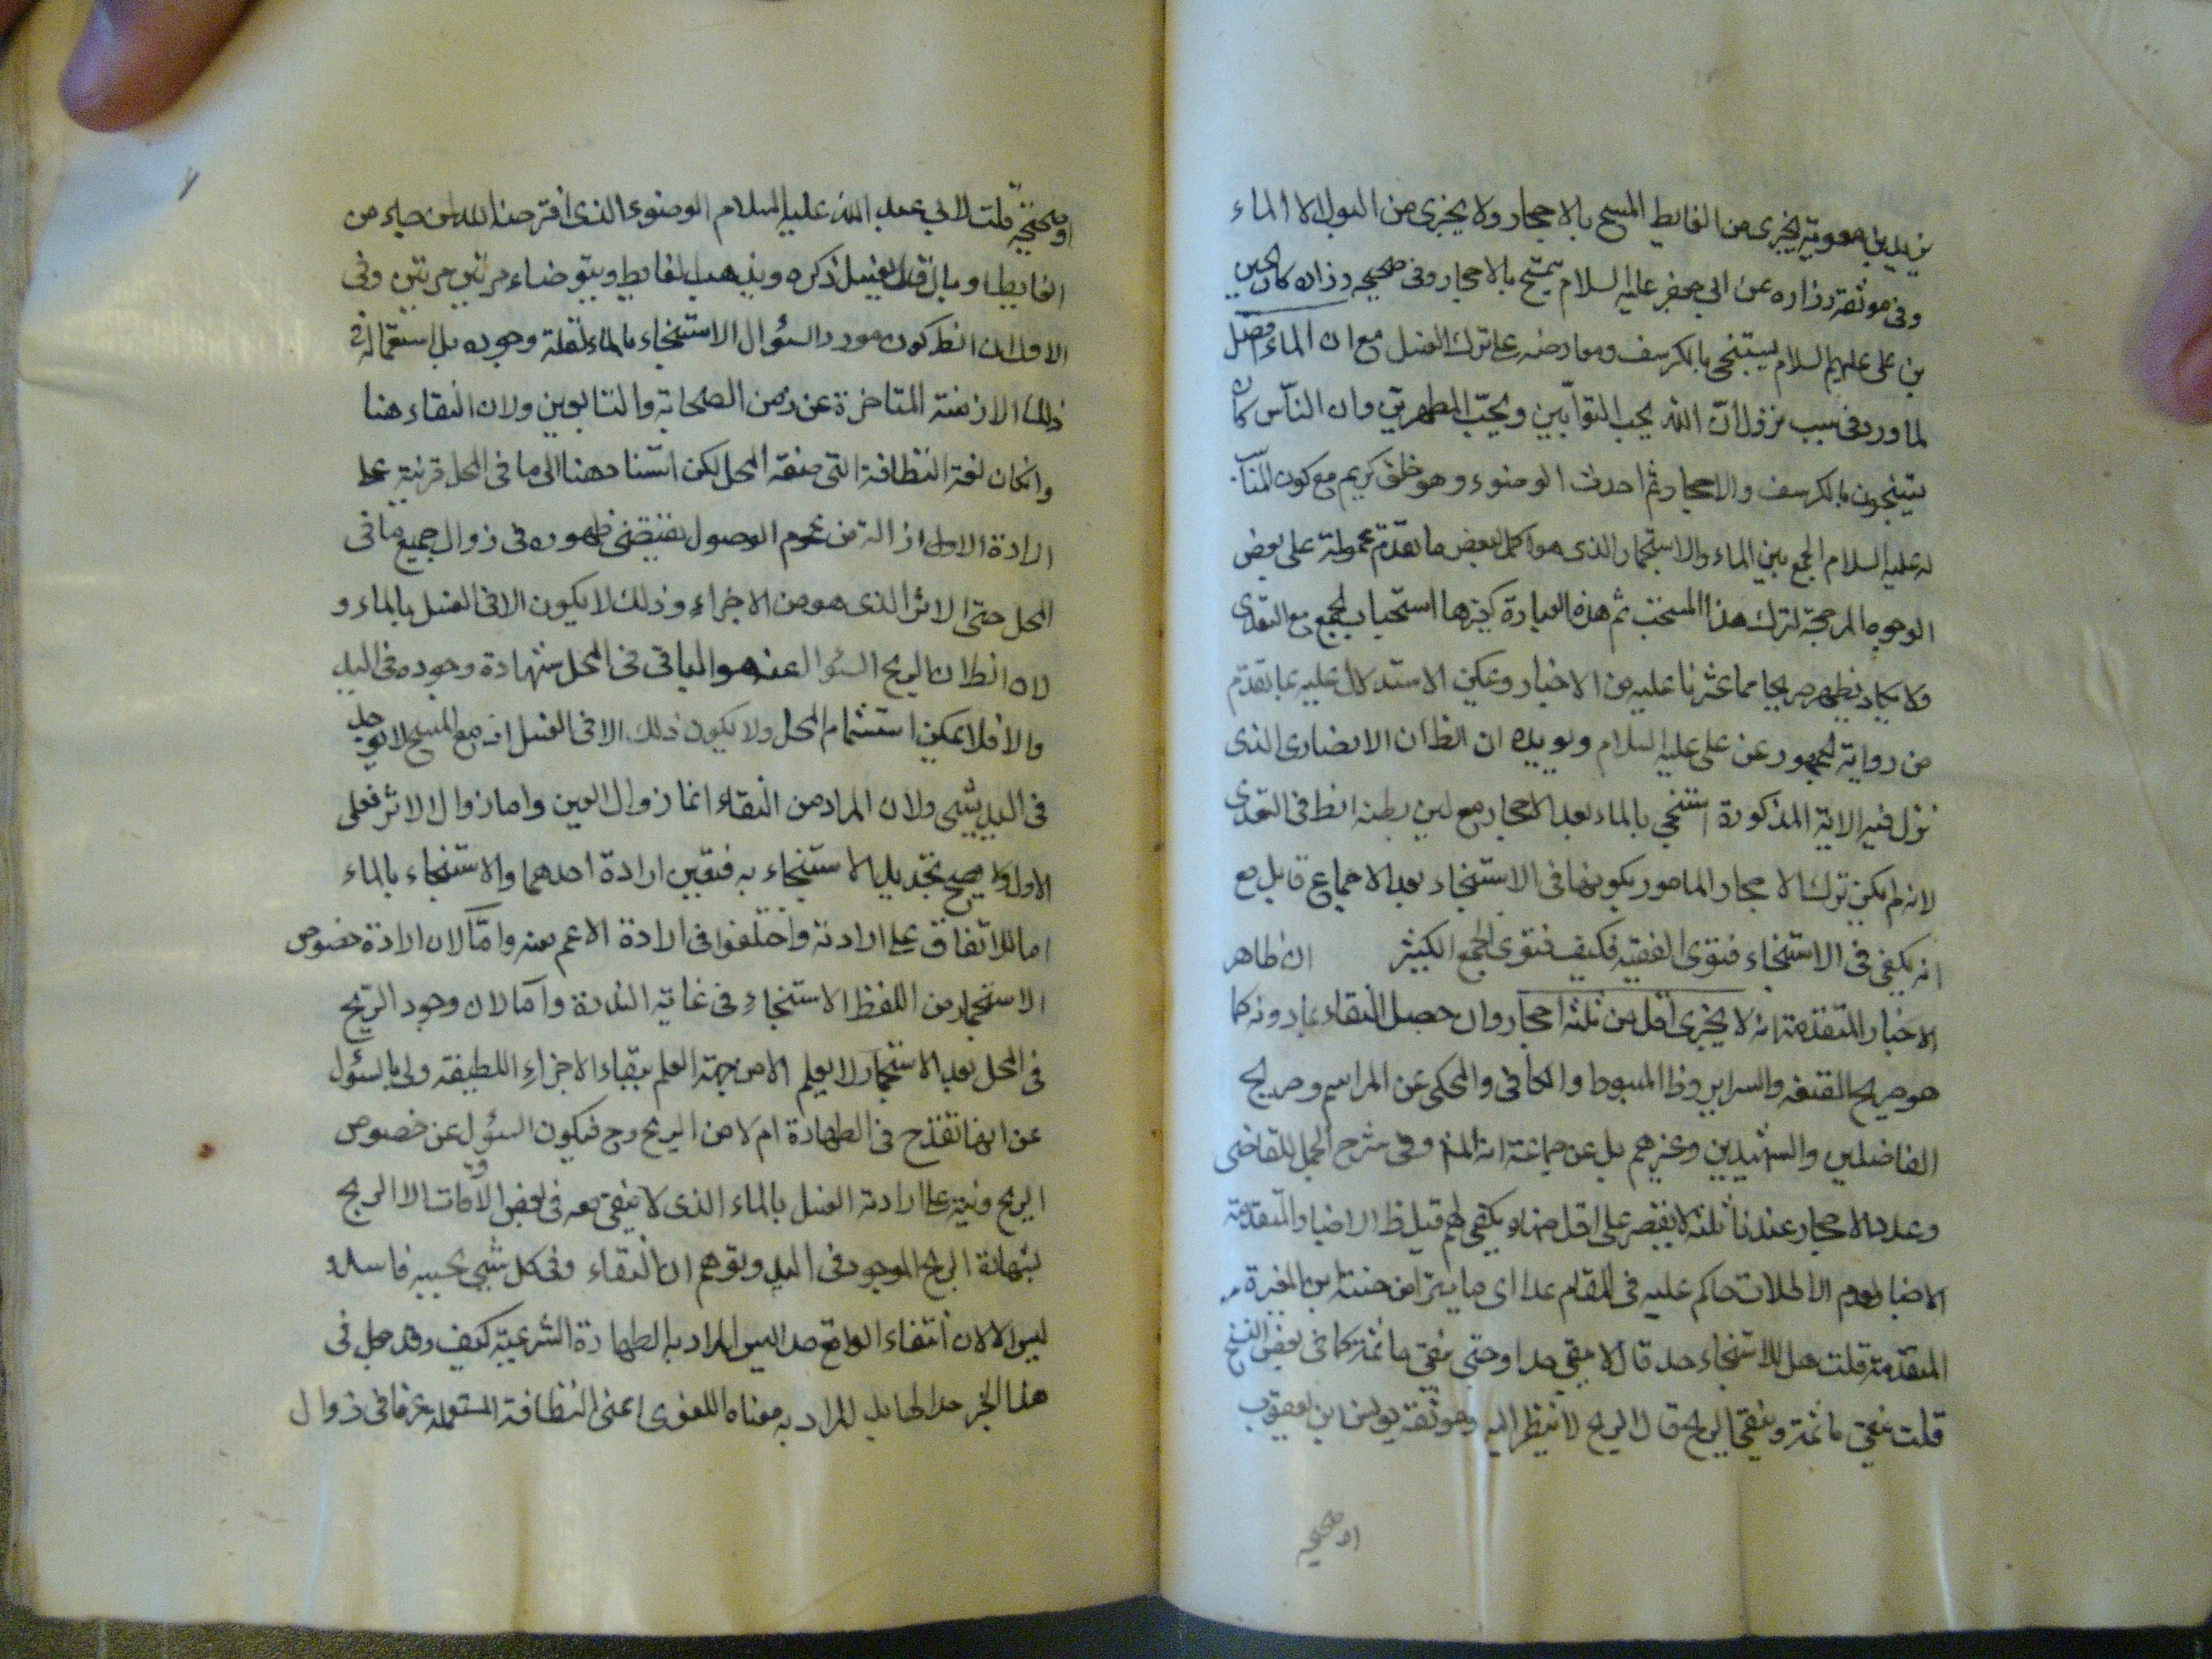 بريد بن معوية يجزى من الغايط المسح بالاحجار ولا يجزى من البول الا الماء
وفى موثقة زراره عن ابي جعفر عليه السلام يتمسح بالاحجار وفى صحيحه زراره كان الحسين
بن على عليهم السلام يستنجى بالكرسف ومعارضه على ترك الغسل مع ان الماء افضل
لما ورد فى سبب نزول ان الله يحب التوابين ويحب المتطهرين وان الناس كان
يستنجون بالكرسف والاحجار ثم احدث الوضوء وهو خلق كريم مع كون المناسب
له عليه السلام الجمع بين الماء والاستجمار الذى هو اكمل لبعض ما تقدم محمولة على بعض
الوجوه المرجحة لترك هذا المستحب ثم هذه العبارة كغيرها استحباب الجمع مع التعدى
ولا يكاد يظهر صريحا مما عثرنا عليه من الاخبار ويمكن الاستدلال عليه بما تقدم
من رواية الجمهور عن على عليه السلام ويويده ان الظ ان الانصارى الذى
نزل فيه الاية المذكورة استنجى بالماء بعد الاحجار مع لين بطنه الظ فى التعدى
لانه لم يكن ترك الاحجار المامور بكونها فى الاستنجاء بعد الاجماع قايل مع
انه يكفى فى الاستنجاء فتوى الفقيه فكيف فتوى الجمع الكثير ان ظاهر
الاخبار المتقدمة انه لا يجزى اقل من ثلثه احجار وان حصل النقاء بما دونه كما
هو صريح المقنعه والسراير وظ المبسوط والكافى والمحكى عن المراسم وصريح
الفاضلين والشهيدين وغيرهم بل عن جماعة انه المش وفى شرح الجمل للقاضى
وعدد الاحجار عندنا ثلثه لا يقتصر على اقل منها ويكفى لهم قيل ظ الاخبار المتقدمة
الاخبار وعموم الاطلاقات حاكم عليه فى المقام عدا اى ما يتراءى من حسنة ابن المغيرة
المتقدمة قلت هل للاستنجاء حد قال لا ينقى حدا وحتى ينقى ماثمة كما فى بعض النسخ
قلت ينقى ماثمة ويبقى الريح قال الريح لا ينظر اليه وموثقة يونس ابن يعقوب
او صحيحه
او صحيحته قلت لابي عبد الله عليه السلام الوضوء الذى افترضه الله لمن جاء من
الغايط او بال قال يغسل ذكره ويذهب الغايط ويتوضاء مرتين مرتين وفى
الاول ان الظ كون مورد السؤال الاستنجاء بالماء لقلة وجوده بل استعماله فى
ذلك الازمنة المتاخرة عن زمن الصحابة والتابعين ولان النقاء هنا
وانكان لغة النظافة التى صفة المحل لكن اسنادهنا الى ما فى المحل قرنية على
ارادة الاول ازالة من عموم الموصول يقتضى ظهوره فى زوال جميع ما فى
المحل حتى الاثر الذى هو من الاجزاء وذلك لا يكون الا فى الغسل بالماء و
لان الظ ان الريح السئوال عنه هو الباقى فى المحل بشهادة وجوده فى اليد
والا فلا يمكن استشمام المحل ولا يكون ذلك الا فى الغسل اذ مع المسح لا يوجد
فى اليد شيى ولان المراد من النقاء انما زوال العين واما زوال الاثر فعلى
الاول لا يصح تحديد الاستنجاء به فتعين ارادة احدهما والاستنجاء بالماء
اما للاتفاق على ارادته واختلفوا فى ارادة الاعم منه واما لان ارادة خصوص
الاستجمار من اللفظ الاستنجاء فى غاية الندرة واما لان وجود الريح
فى المحل بعد الاستجمار لا يعلم الا من جهة العلم ببقاء الاجزاء اللطيفة ولى بالسئول
عن انها تقدح فى الطهارة ام لا من الريح وح فيكون السؤل عن خصوص
الريح قرنية على ارادة الغسل بالماء الذى لا يبقى معه فى بعض الاوقات الا الريح
بشهادة الريح الموجود فى اليد وتوهم ان النقاء وفى كل شيى بحسبه فاسد
ليس الا لان انتفاء الواقع صدا ليس المراد به الطهارة الشرعية كيف وقد جعل فى
هذا الخبر حدا لها بل المراد به معناه اللغوى اعنى النظافة المستعملة عرفا فى زوال